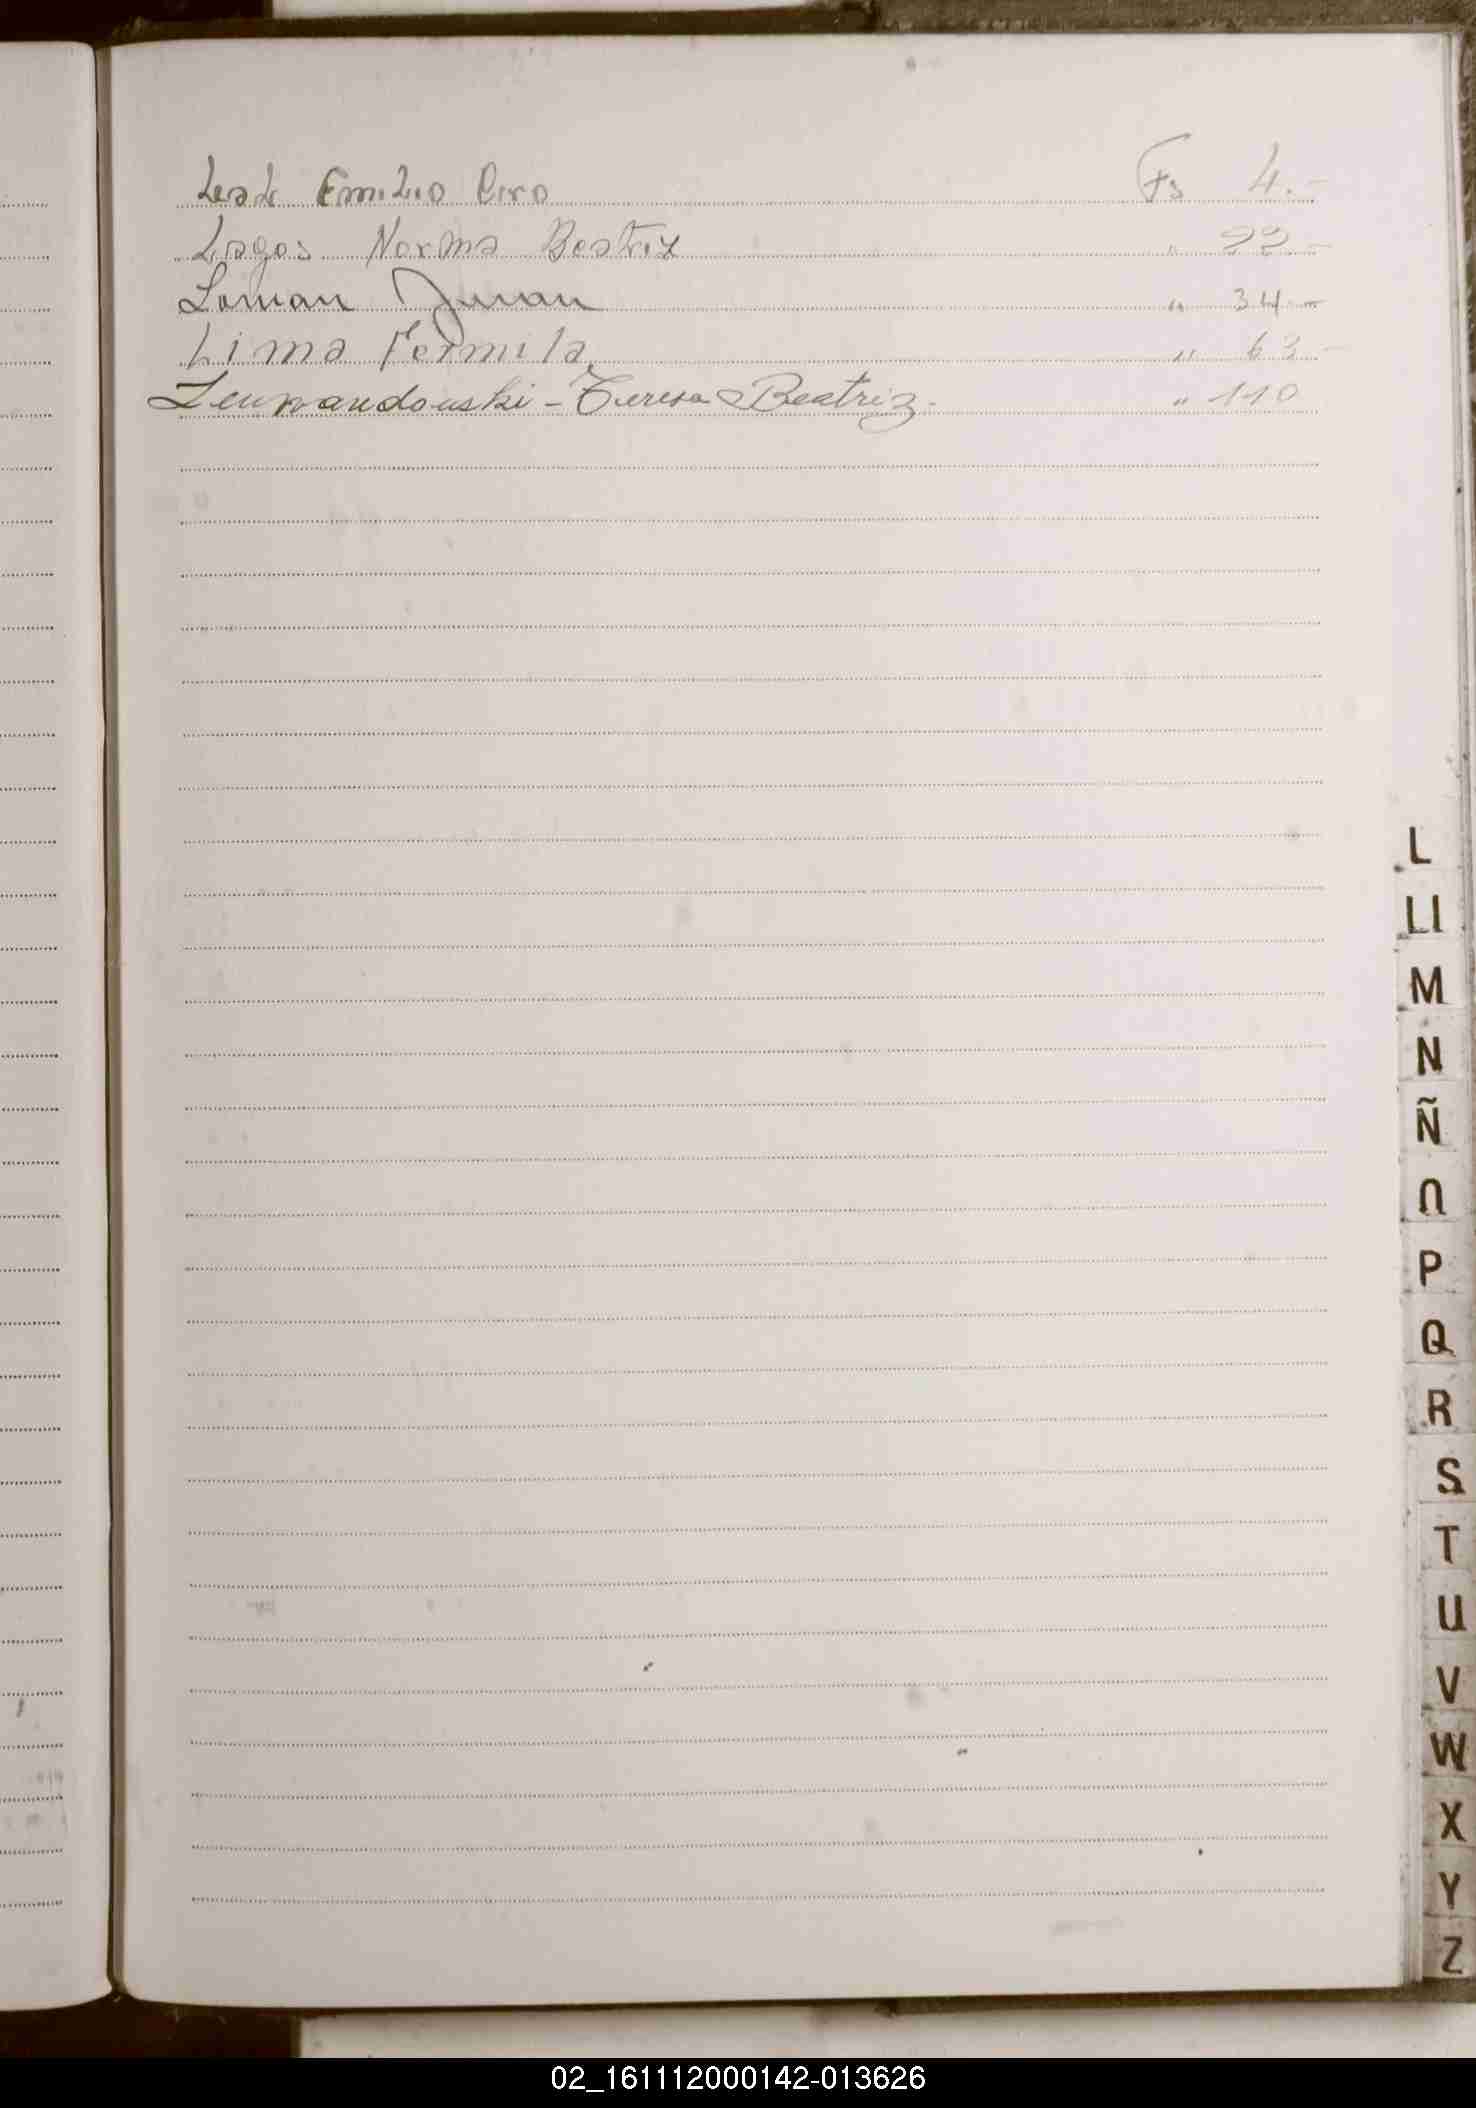 Leal Emilio Ciro Fs 4.-
Lagos Norma Beatriz " 22 -
Loman Juan " 34 -
Lima Fermila " 63 -
Lewandouski - Teresa Beatriz. " 110
L
Ll
M
N
Ñ
O
P
Q
R
S
T
U
V
W
X
Y
Z
02_161112000142-013626